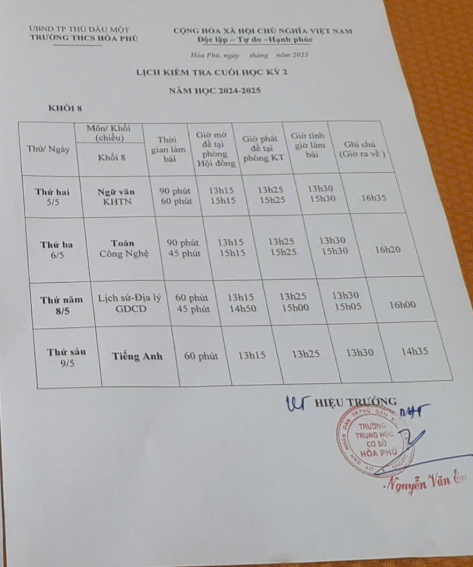 UBND TP THỦ DẦU MỘT
TRƯỜNG THCS HÒA PHÚ
CỘNG HÒA XÃ HỘI CHỦ NGHĨA VIỆT NAM
Độc lập – Tự do –Hạnh phúc
Hòa Phú, ngày tháng năm 2025
LỊCH KIỂM TRA CUỐI HỌC KỲ 2
NĂM HỌC 2024-2025
KHỐI 8
Thứ/ Ngày
Môn/ Khối
(chiều)
Khối 8
Thời
gian làm
bài
Giờ mở
đề tại
phòng
Hội đồng
Giờ phát
đề tại
phòng KT
Giờ tính
giờ làm
bài
Ghi chú
(Giờ ra về )
Thứ hai
5/5
Ngữ văn 90 phút 13h15 13h25 13h30
KHTN 60 phút 15h15 15h25 15h30
16h35
Thứ ba
6/5
Toán 90 phút 13h15 13h25 13h30
Công Nghệ 45 phút 15h15 15h25 15h30
16h20
Thứ năm
8/5
Lịch sử-Địa lý 60 phút 13h15 13h25 13h30
GDCD 45 phút 14h50 15h00 15h05
16h00
Thứ sáu
9/5
Tiếng Anh 60 phút 13h15 13h25 13h30 14h35
HIỆU TRƯỞNG
TRƯỜNG
TRUNG HỌC
CƠ SỞ
HÒA PHÚ
Nguyễn Văn